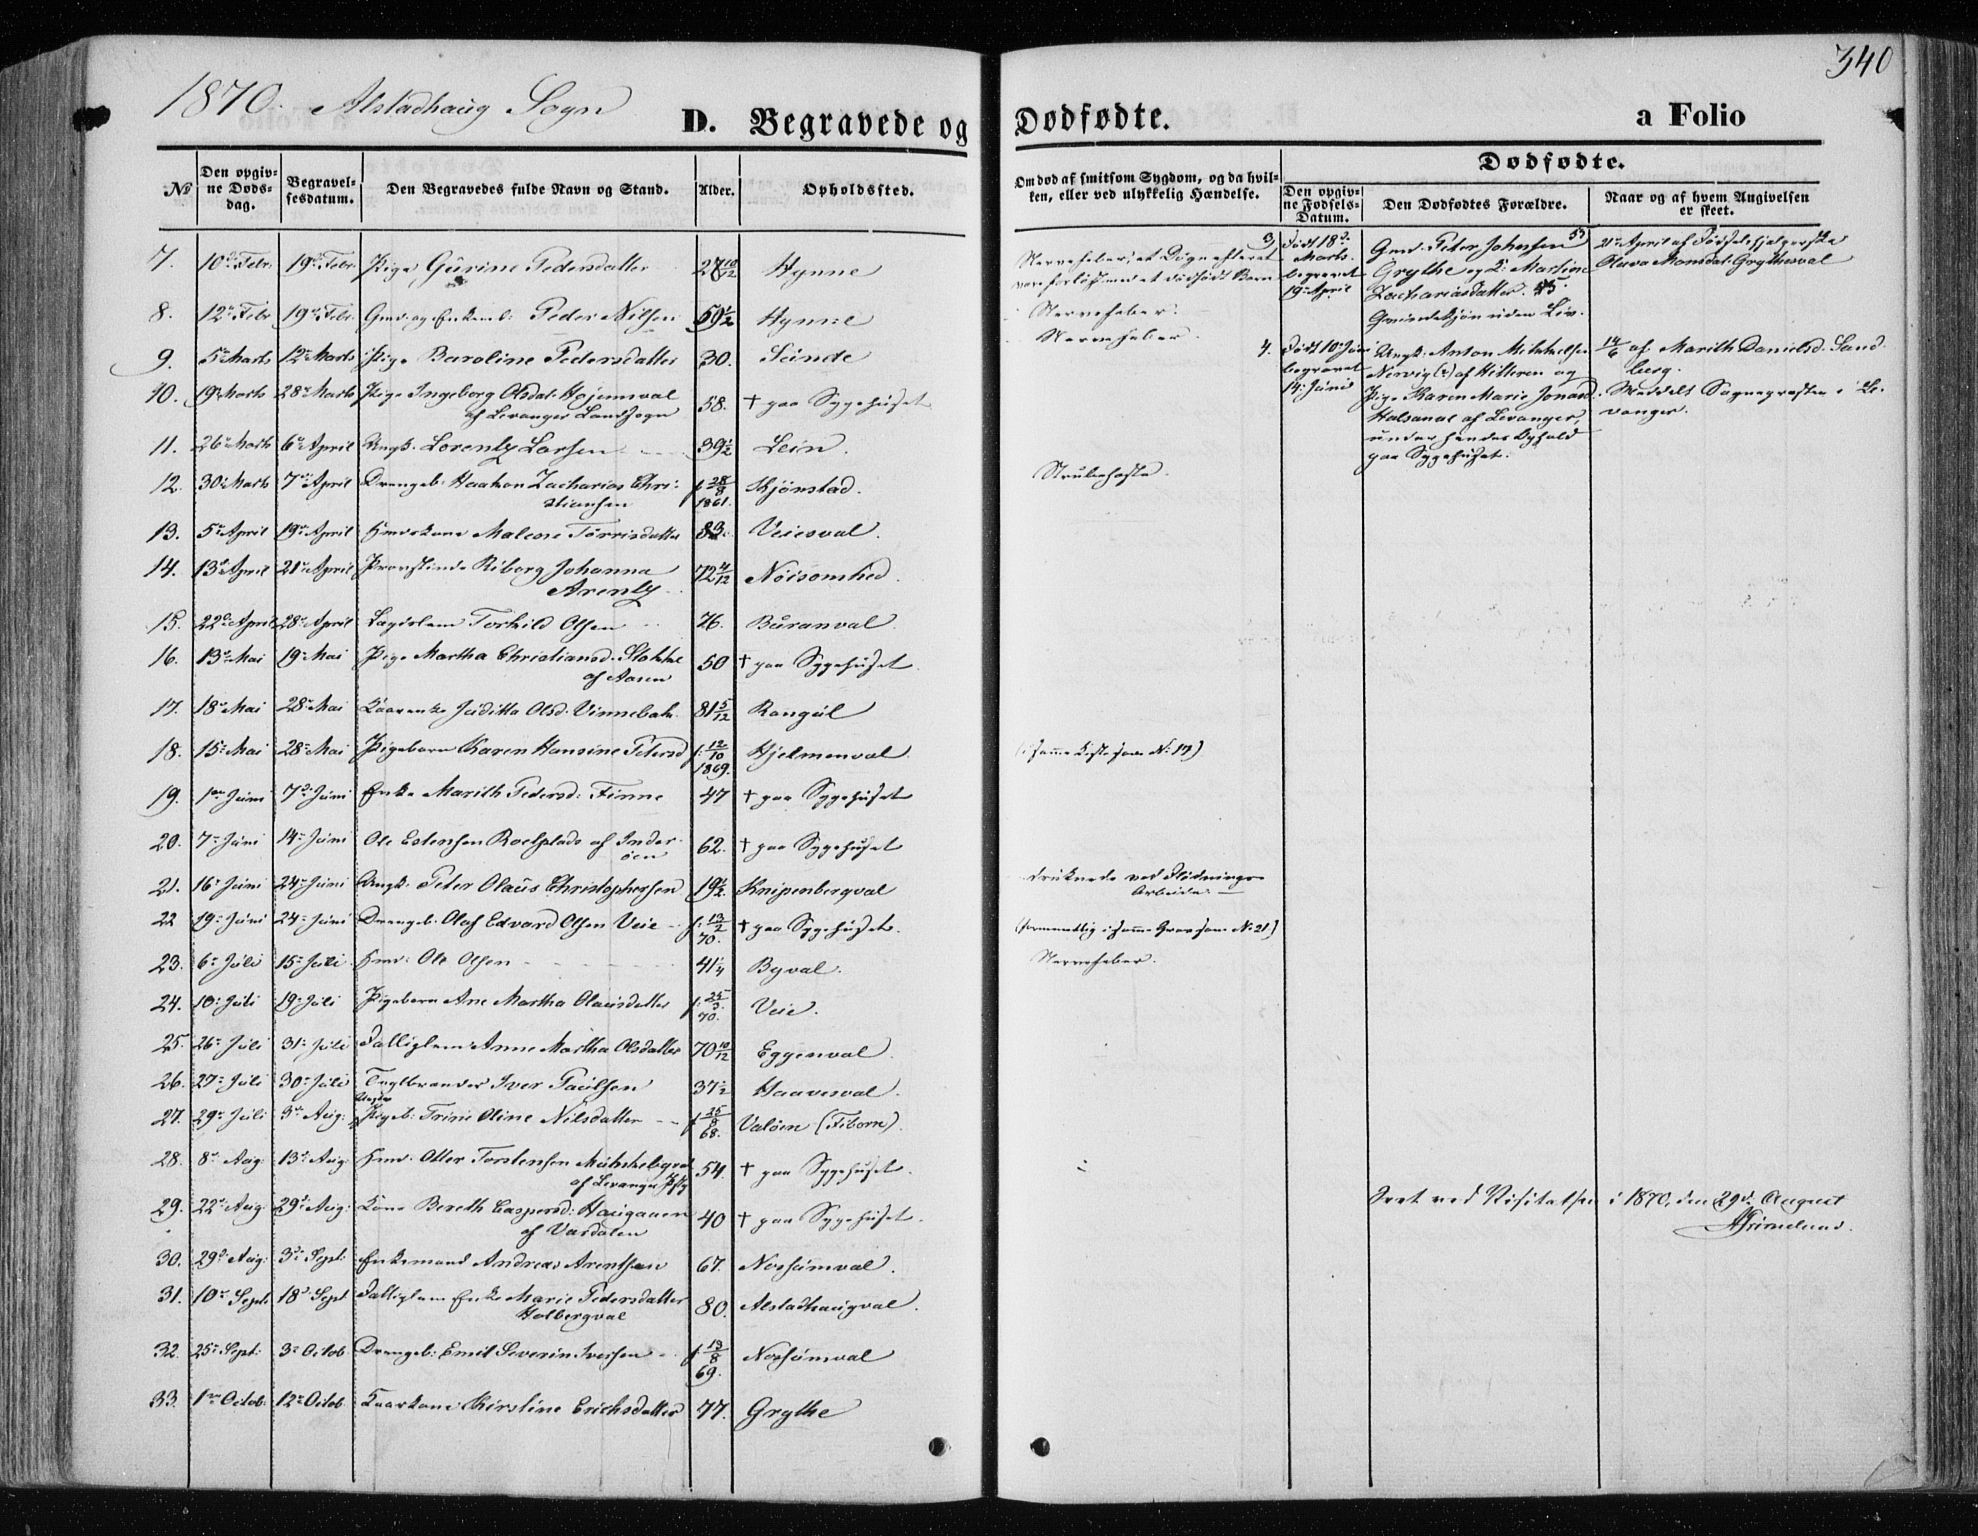 340
1870. Alstadhaug Sogn
D. Begravede og Dødfødte.
a Folio
No
Den opgiv=
ne Døds=
dag.
Begravel=
sesdatum.
Den Begravedes fulde Navn og Stand.
Alder.
Opholdssted.
Om død af smitsom Sygdom, og da hvil=
ken, eller ved ulykkelig Hændelse.
Dødfødte.
Den opgiv=
ne Fødsels=
Datum.
Den Dødfødtes Forældre.
Naar og af hvem Angivelsen
er skeet.
7. 10de Febr. 19de Febr. Pige Gurine Pedersdatter 27 10/12 Hynne
8. 12te Febr 19de Febr. Peder Nilsen 59 1/2 Hynne
Nervefeber.
9. 5te Marts 12te Marts Pige Baroline Pedersdatter 30. Seinde
Nervefeber.
10. 19de Marts 28de Marts Pige Ingeborg Olsdat. Hojemsval
af Levanger Landsogn
58. † paa Sygehuset
11. 26de Marts 6te April Ungk. Lorentz Larsen 39 1/2 Lein.
12. 30te Marts 7de April Drengeb. Haakon Zacharias Chri=
stiansen
f. 28/8
1861.
Skjønstad.
Strubehoste.
13. 5te April 19de April Malene Torrisdatter 83. Veiesval.
14. 13de April 21de April Provstinde Riborg Johanna
Arentz
72 4/12 Nøisomhed.
15. 22de April 28de April Torkild Olsen 76. Buranval.
16. 13de Mai 19de Mai Pige Martha Christiansd. Stokke
af Aasen
50 † paa Sygehuset.
17. 18de Mai 28de Mai Olsd. Vinnebak. 81 5/12 Rangul
18. 15de Mai 28de Mai Pigebarn Karen Hansine Petersd
f. 12/10
1869.
Hjelmenval.
(i samme Kiste som No. 17)
19. 1ste Juni 7de Juni Enke Marith Pedersd: Finne 47 † paa Sygehuset
20. 7de Juni 14de Juni Ole Estensen Roelsplads af Inder=
øen
62. † paa Sygehuset
21. 16de Juni 24de Juni Ungk. Peter Olaus Christophersen 19 1/2 Knipenbergval
druknede ved Flødnings=
Arbeide.
22 19de Juni 24de Juni Drengeb. Olaf Edvard Olsen Veie
f. 13/2
70.
† paa Sygehuset.
(formentlig i samme Grav som No. 21)
23. 6te Juli 15de Juli Ole Olsen 41 1/4 Byval.
Nervefeber.
24. 10de Juli 19de Juli Pigebarn Ane Martha Olausdatter
f. 25/3
70.
Veie.
25. 26de Juli 31te Juli Fattiglem Anne Martha Olsdatter 70 10/12 Eggenval.
26. 27de Juli 30te Juli Teglbrænder Iver Paulsen 37 1/2 Haavesval.
27. 29de Juli 3die Aug. Pigeb. Trine Oline Nilsdatter
f. 25/8
68.
Valøen (Fiborn).
28. 8de Aug. 13de Aug. Otter Torstensen
af Levanger
54. † paa Sygehuset.
29. 22de Aug. 29de Aug. Kone Bereth Caspersd: Haugauen
af Værdalen
40 † paa Sygehuset.
30. 29de Aug. 3die Sept. Enkemand Andreas Arentsen 67. Nossumval.
31. 10de Sept. 18de Sept Fattiglem Enke Marie Pedersdatter
Holbergval
80. Alstadhaugval.
32. 25de Sept. 3die Octob Drengeb. Emil Severin Iversen
f. 13/8
69.
Nossumval
33. 1ste Octob. 12te Octob Kirstine Erichsdatter 77. Grythe
3, Født 18de
Marts.
begravet
19de April
Gmd. Peter Johnsen 53
Grythe og K: Martine
Zachariasdatter. 45.
uden Liv.
21de April af
4. Født 10de Juni
begravet
14. Juni
Ungk. Anton Mikkelsen
Nervig (?) af Hitteren og
Pige Karen Marie Jonasd.
Halsanal af Levanger,
under hendes Ophold
paa Sygehuset.
14/6 af Marith Danielsd. Sand=
berg.
Meddelt Sognepræsten i Le=
vanger.
Seet ved Visitatsen i 1870, den 29de August
AGrimelund.